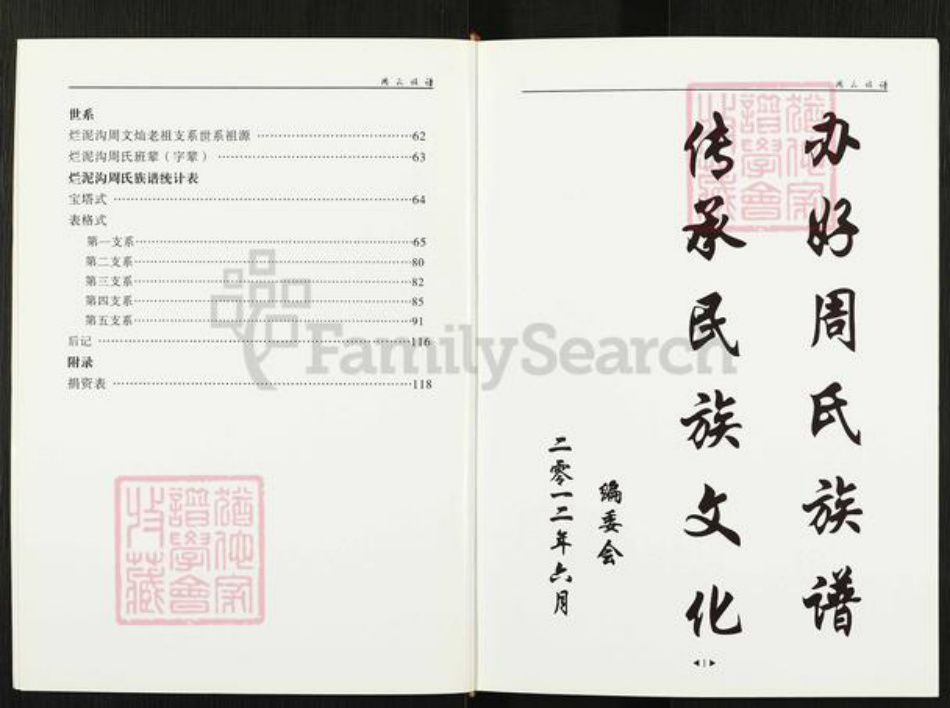 周氏族谱
世系
烂泥沟周文灿老祖支系世系祖源 62
烂泥沟周氏班辈（字辈） 63
烂泥沟周氏族谱统计表
宝塔式 64
表格式
第一支系 65
第二支系 80
第三支系 82
第四支系 85
第五支系 91
后记 116
附录
捐资表 118
猶他家
譜學會
收藏
周氏族谱
猶他家
譜學會
收藏
办好周氏族谱
传承民族文化
编委会
二零一二年六月
◀1▶
FamilySearch